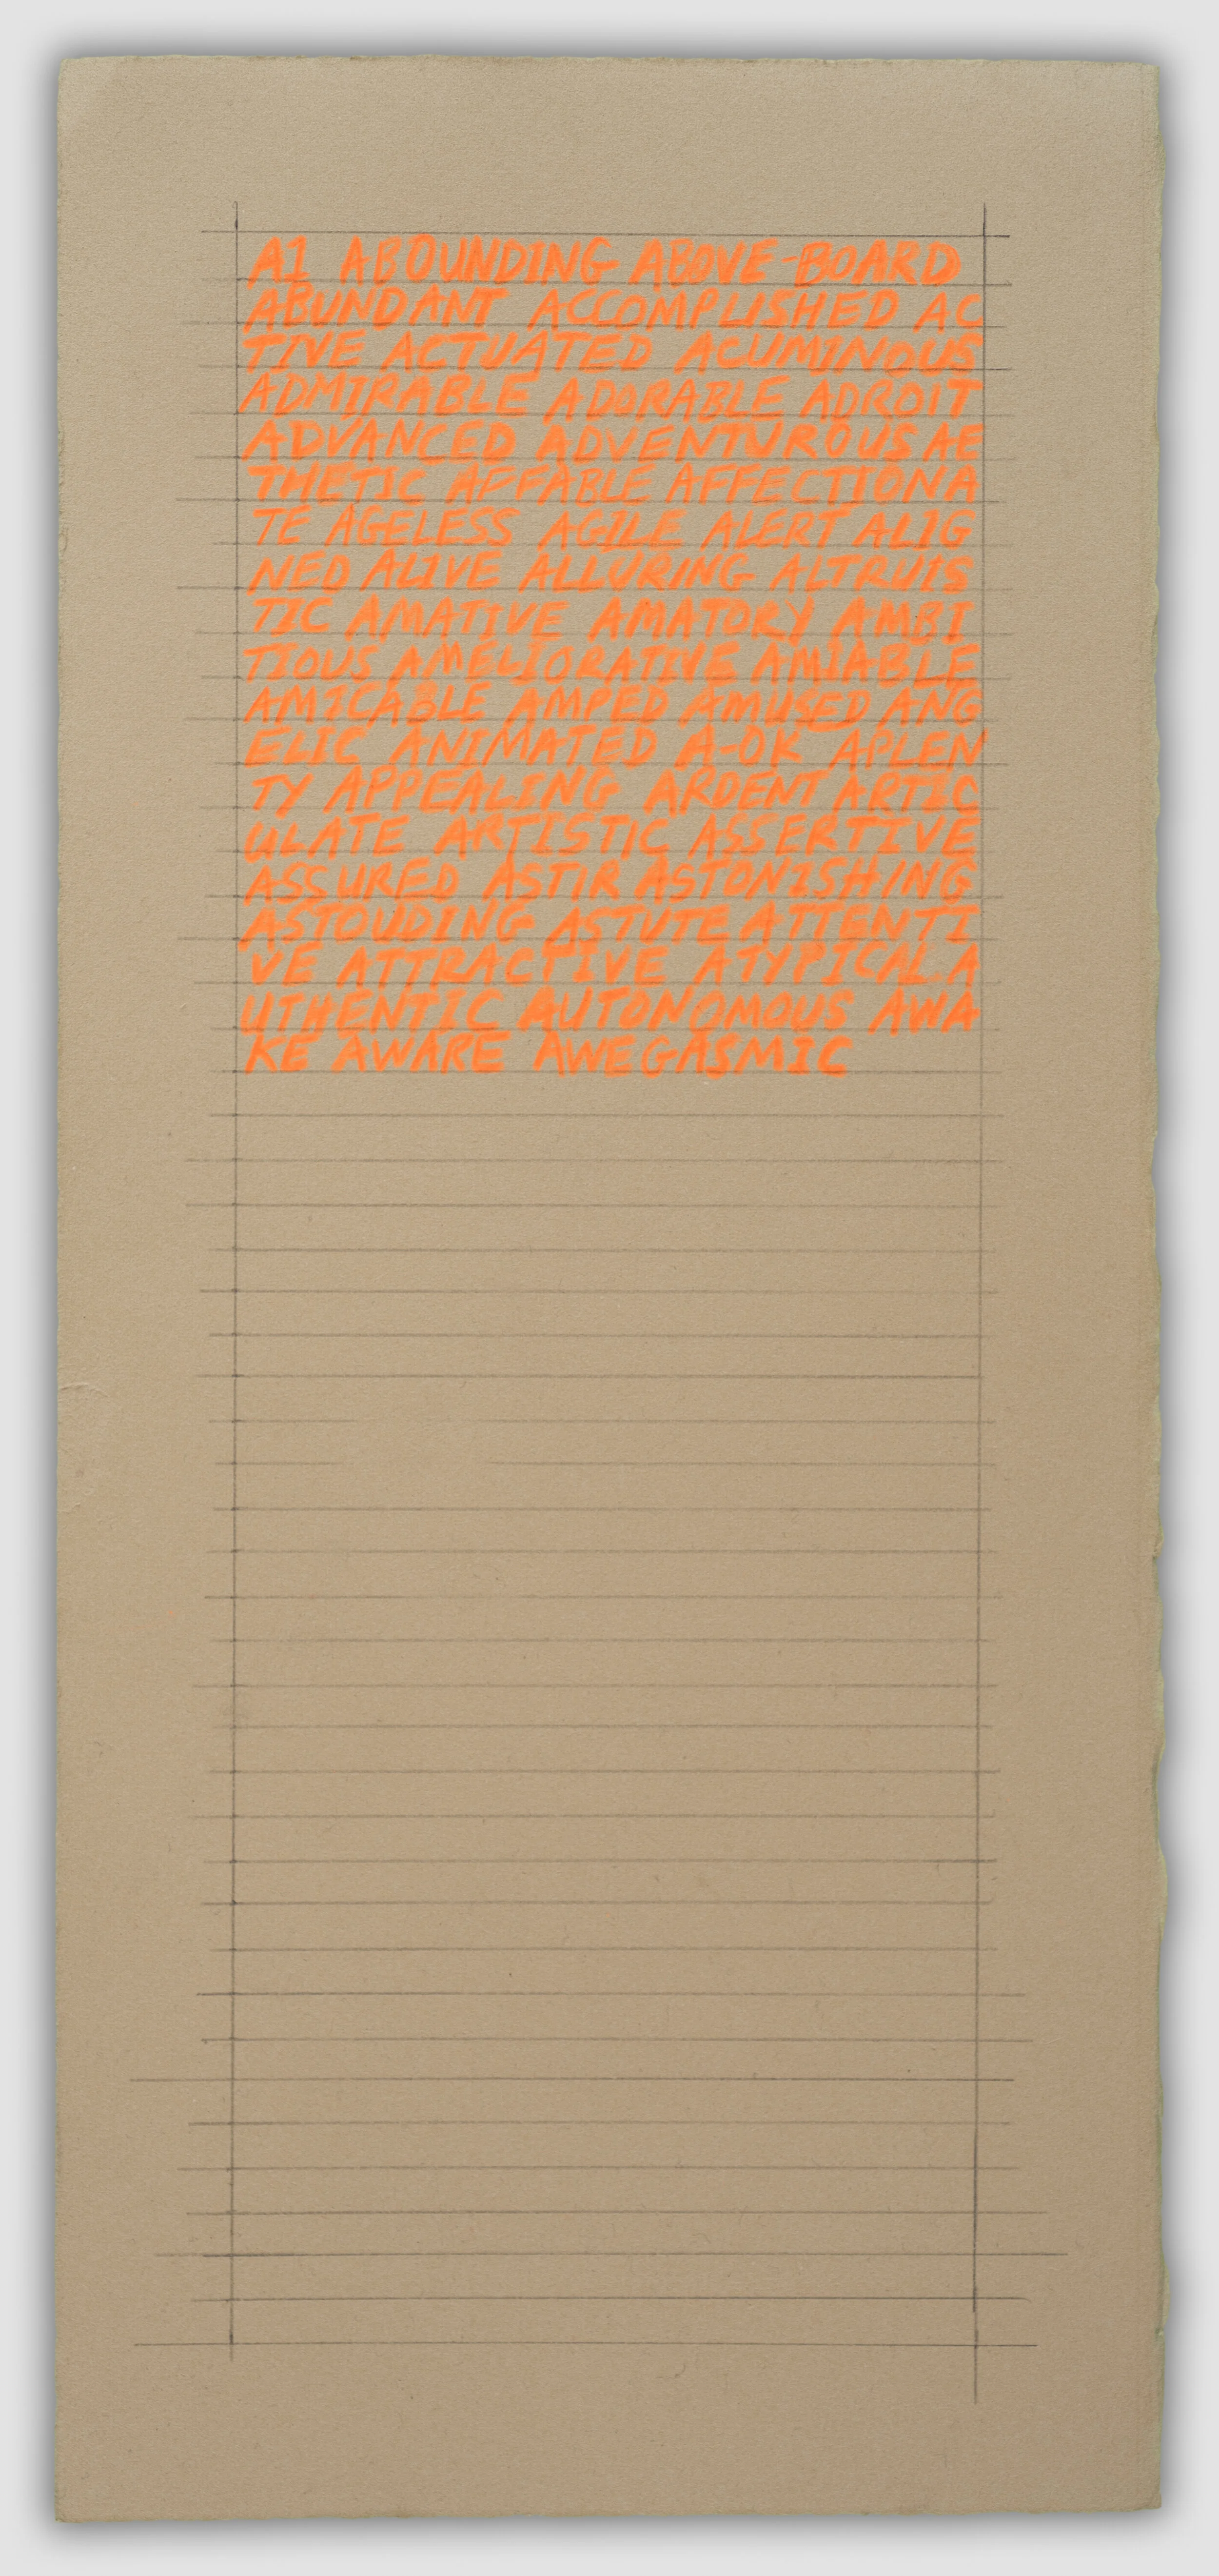 A1 ABOUNDING ABOVE-BOARD
ABUNDANT ACCOMPLISHED AC
TIVE ACTUATED ACUMINOUS
ADMIRABLE ADORABLE ADROIT
ADVANCED ADVENTUROUS AE
THETIC AFFABLE AFFECTIONA
TE AGELESS AGILE ALERT ALIG
NED ALIVE ALLURING ALTRUIS
TIC AMATIVE AMATORY AMBI
TIOUS AMELIORATIVE AMIABLE
AMICABLE AMPED AMUSED ANG
ELIC ANIMATED A-OK APLEN
TY APPEALING ARDENT ARTIC
ULATE ARTISTIC ASSERTIVE
ASSURED ASTIR ASTONISHING
ASTOUDING ASTUTE ATTENTI
VE ATTRACTIVE ATYPICAL A
UTHENTIC AUTONOMOUS AWA
KE AWARE AWEGASMIC